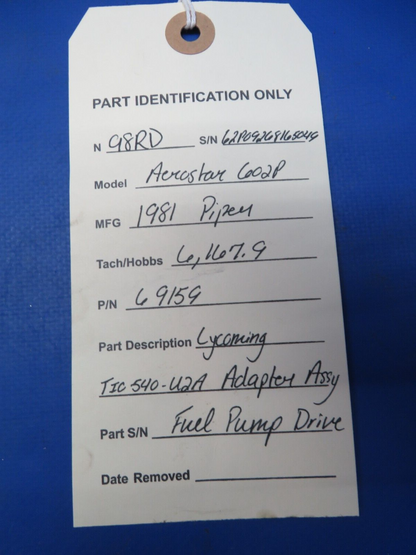 PART IDENTIFICATION ONLY
N 98RD S/N 62P09268165049
Model Aerostar 602P
MFG 1981 Piper
Tach/Hobbs 6,167.9
P/N 69159
Part Description Lycoming
TIC 540-U2A Adapter Assy
Part S/N Fuel Pump Drive
Date Removed